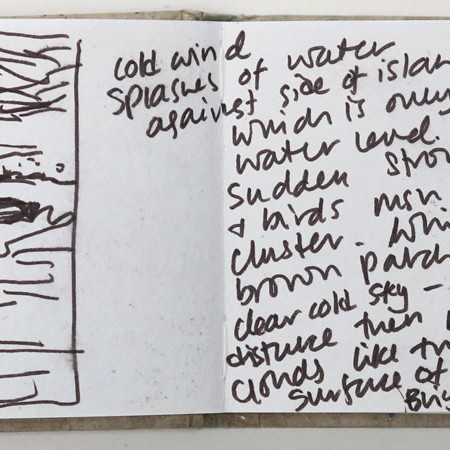 cold wind
splashes of water
against side of islan
which is only
water level.
sudden stro
& birds
cluster. Whi
brown patch
clear cold sky –
distance then
clouds like th
surface of